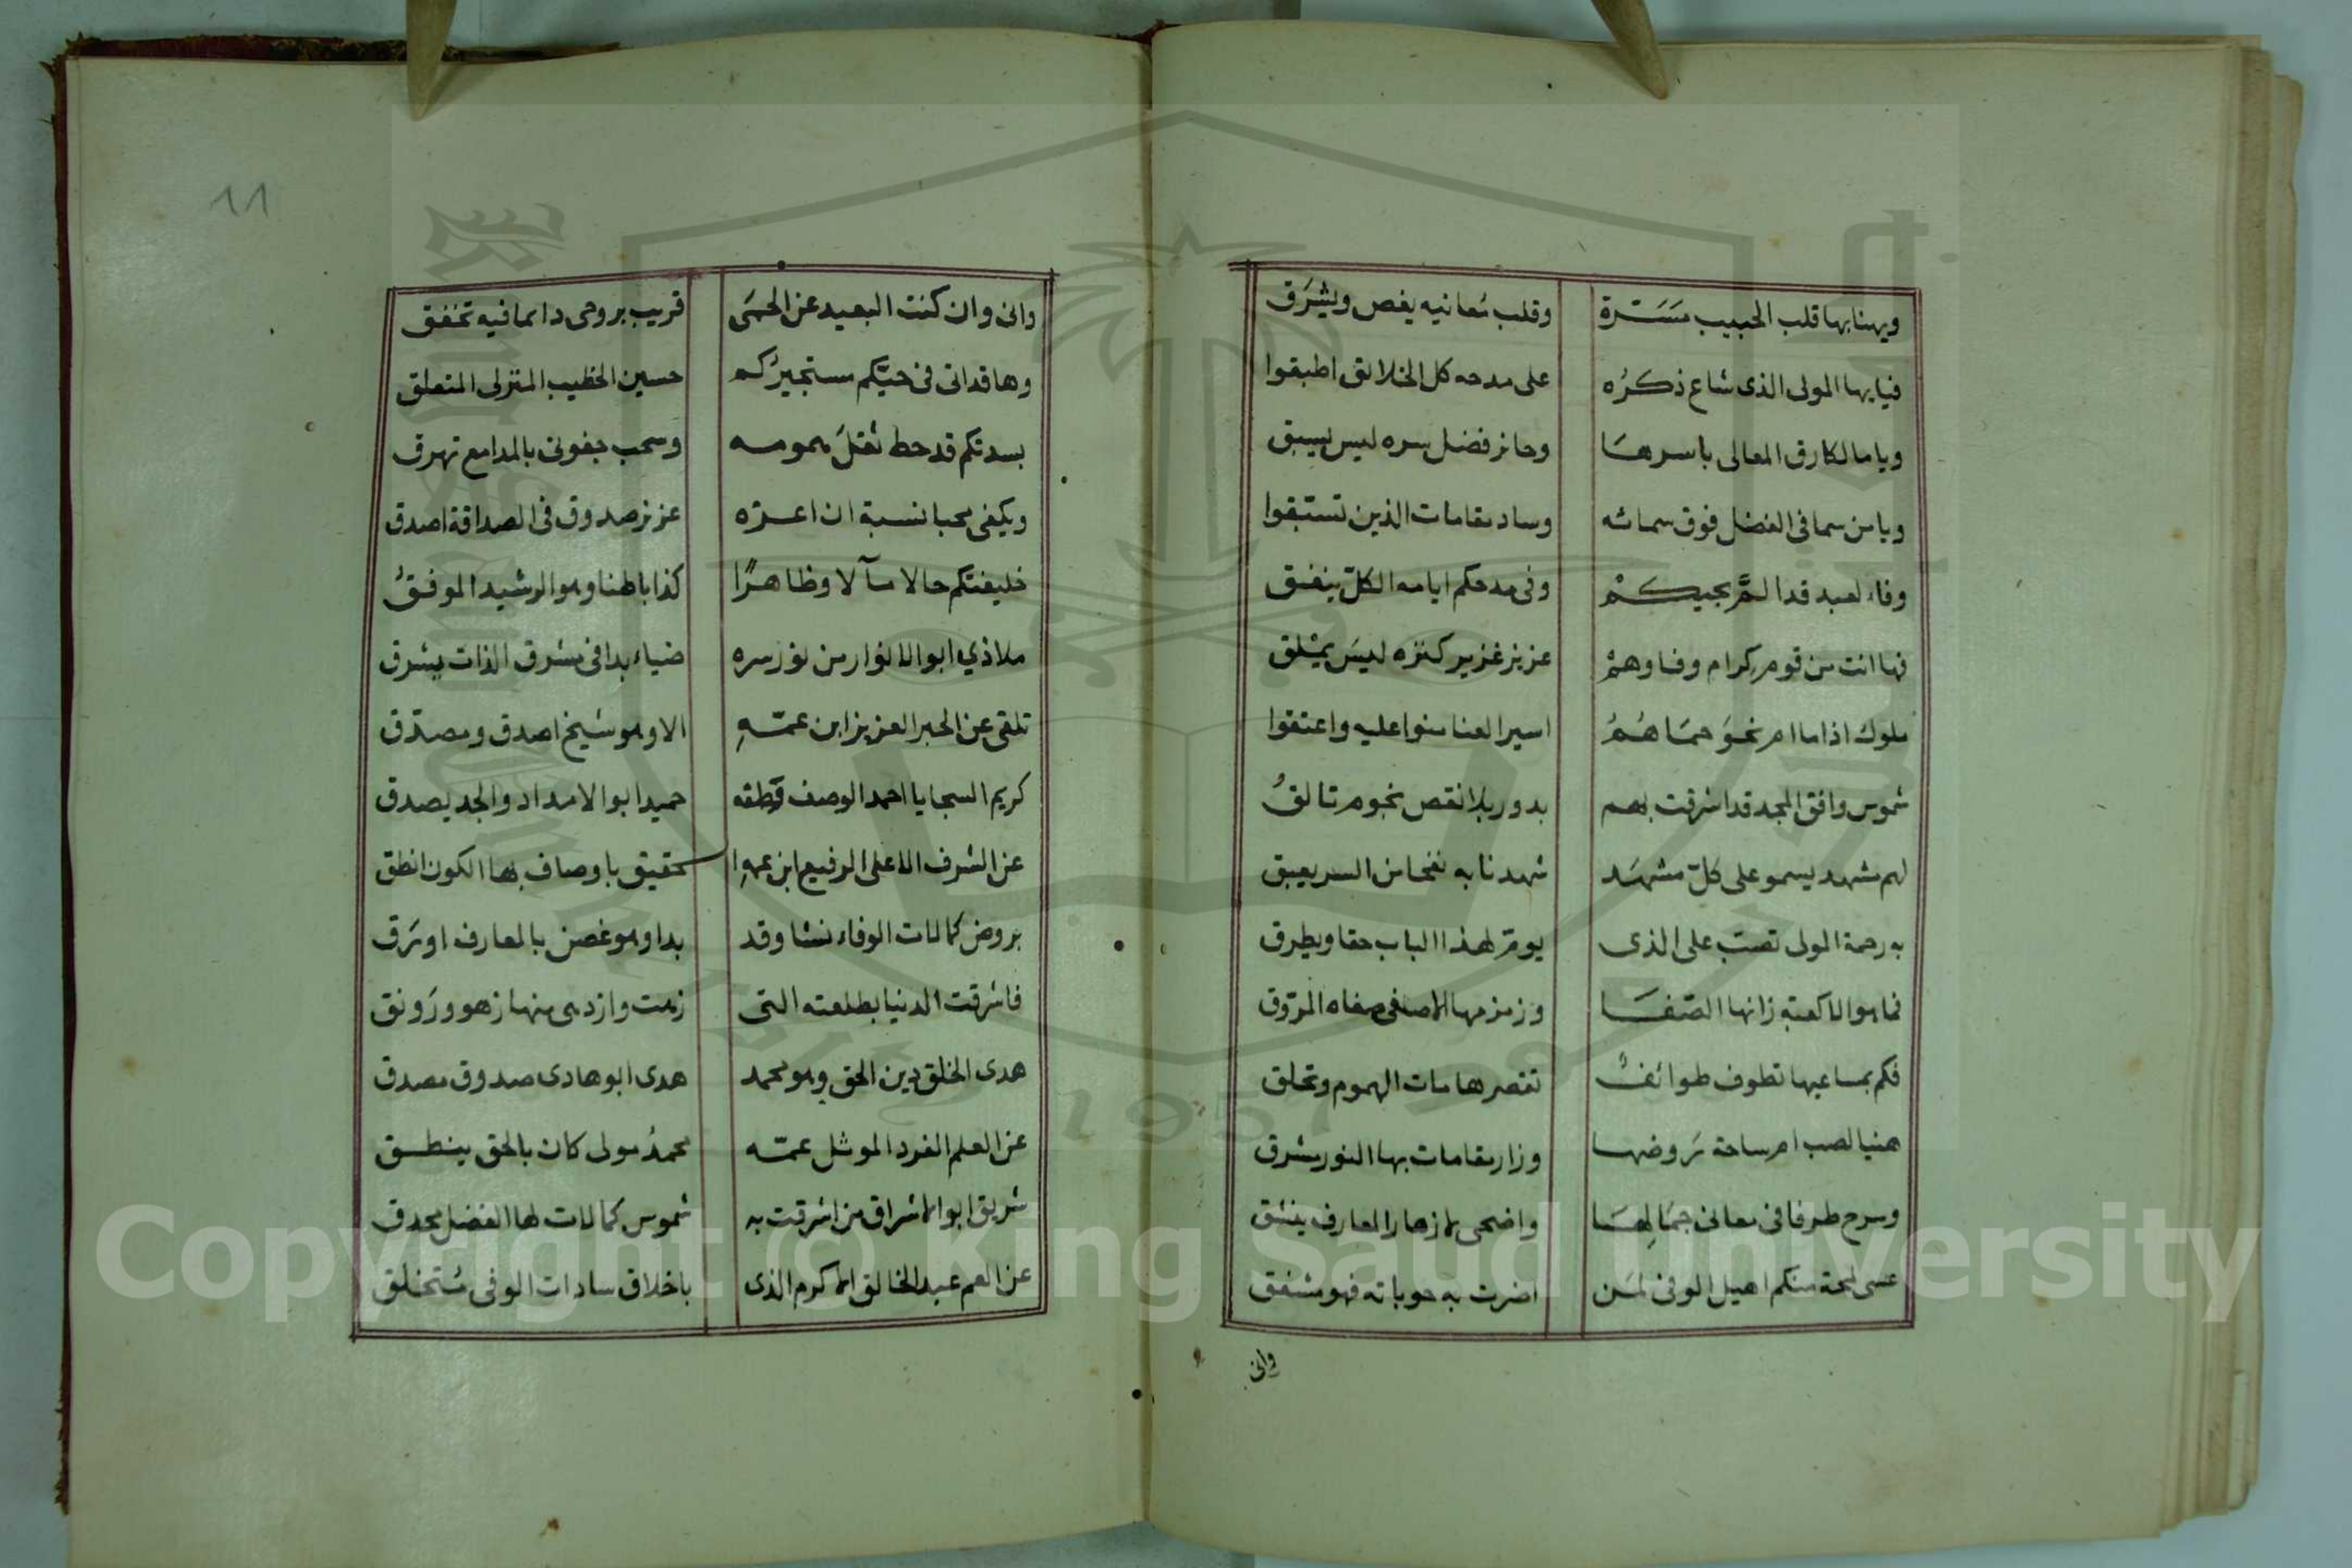 ويهنا بها قلب الحبيب مسترة وقلب معانيه يغص ويشرق
فيا يها المولى الذى شاع ذكره على مدحه كل الخلائق اطبقوا
ويا مالكا رق المعالى باسرها وحائز فضل سره ليس يسبق
ويا من سما فى الفضل فوق سمائه وساد مقامات الذين تستبقوا
وفاء لعبد قد الم بحيكم وفى مدحكم ايامه الكل ينفق
فها انت من قوم كرام وفا وهم عزيز غزير كنزه ليس يمثلق
ملوك اذا ما ام نحو حماهم اسير العنا منوا عليه واعتقوا
شموس وافق المجد قد اشرقت بهم بدور بلا نقص نجوم تالق
لهم مشهد يسمو على كل مشهد شهدنا به نفحا من السر يعبق
به رحمة المولى تصب على الذى يوم لهذا الباب حقا ويطرق
فما هو الا كعبة زانها الصفا وزمزمها الاصفى صفاه المروق
فكم بمساعيها تطوف طوائف تقصر هامات الهموم وتحلق
هنيا لصب ام ساحة روضها وزار مقامات بها النور مشرق
وسرح طرفا فى معانى جمالها واضحى لازهار المعارف ينشق
عسى لمحة منكم اهيل الوفى لمن اضرت به حوباته فهو مشفق
وانى
١١
وانى وان كنت البعيد عن الحمى قريب بروحى دائما فيه تخفق
وها قد اتى فى حيكم مستجيركم حسين الخطيب المنزلى المتعلق
بسدتكم قد حط ثقل همومه وسحب جفونى بالمدامع تهرق
ويكفى محبا نسبة ان اعزه عزيز صدوق فى الصداقة اصدق
خليفتكم حالا مآلا وظاهرا كذا باطنا وهو الرشيد الموفق
ملاذي ابو الانوار من نور سره ضياء بدا فى مشرق الذات يشرق
تلقى عن الحبر العزيز ابن عمه الا وهو شيخ اصدق ومصدق
كريم السجايا احمد الوصف قطقه حميد ابو الامداد والجد يصدق
عن الشرف الاعلى الرفيع ابن عمه حقيق باوصاف بها الكون انطق
بروض كمالات الوفاء نشا وقد بدا وهو غصن بالمعارف اورق
فاشرقت الدنيا بطلعته التى زهت وازدهى منها زهو ورونق
هدى الخلق دين الحق وهو محمد هدى ابو هادى صدوق مصدق
عن العلم الفرد الموئل عمه محمد مولى كان بالحق ينطق
شريق ابو الاشراق من اشرقت به شموس كمالات لها الفضل محدق
عن العم عبد الخالق الاكرم الذى باخلاق سادات الوفى متخلق
Copyright © King Saud University
1957